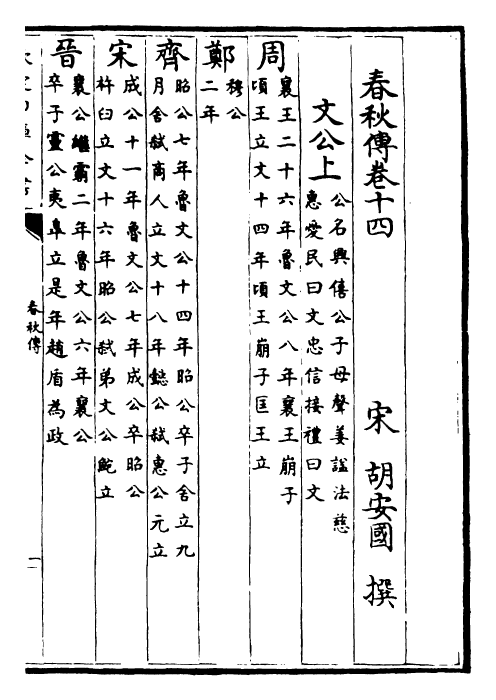 春秋傳卷十四
宋 胡安國 撰
文公上
公名興僖公子母聲姜諡法慈
惠愛民曰文忠信接禮曰文
周
襄王二十六年魯文公八年襄王崩子
頃王立文十四年頃王崩子匡王立
鄭
穆公
二年
齊
昭公七年魯文公十四年昭公卒子舍立九
月舍弑商人立文十八年懿公弑惠公元立
宋
成公十一年魯文公七年成公卒昭公
杵臼立文十六年昭公弑弟文公鮑立
晉
襄公繼霸二年魯文公六年襄公
卒子靈公夷臯立是年趙盾為政
春秋傳
一